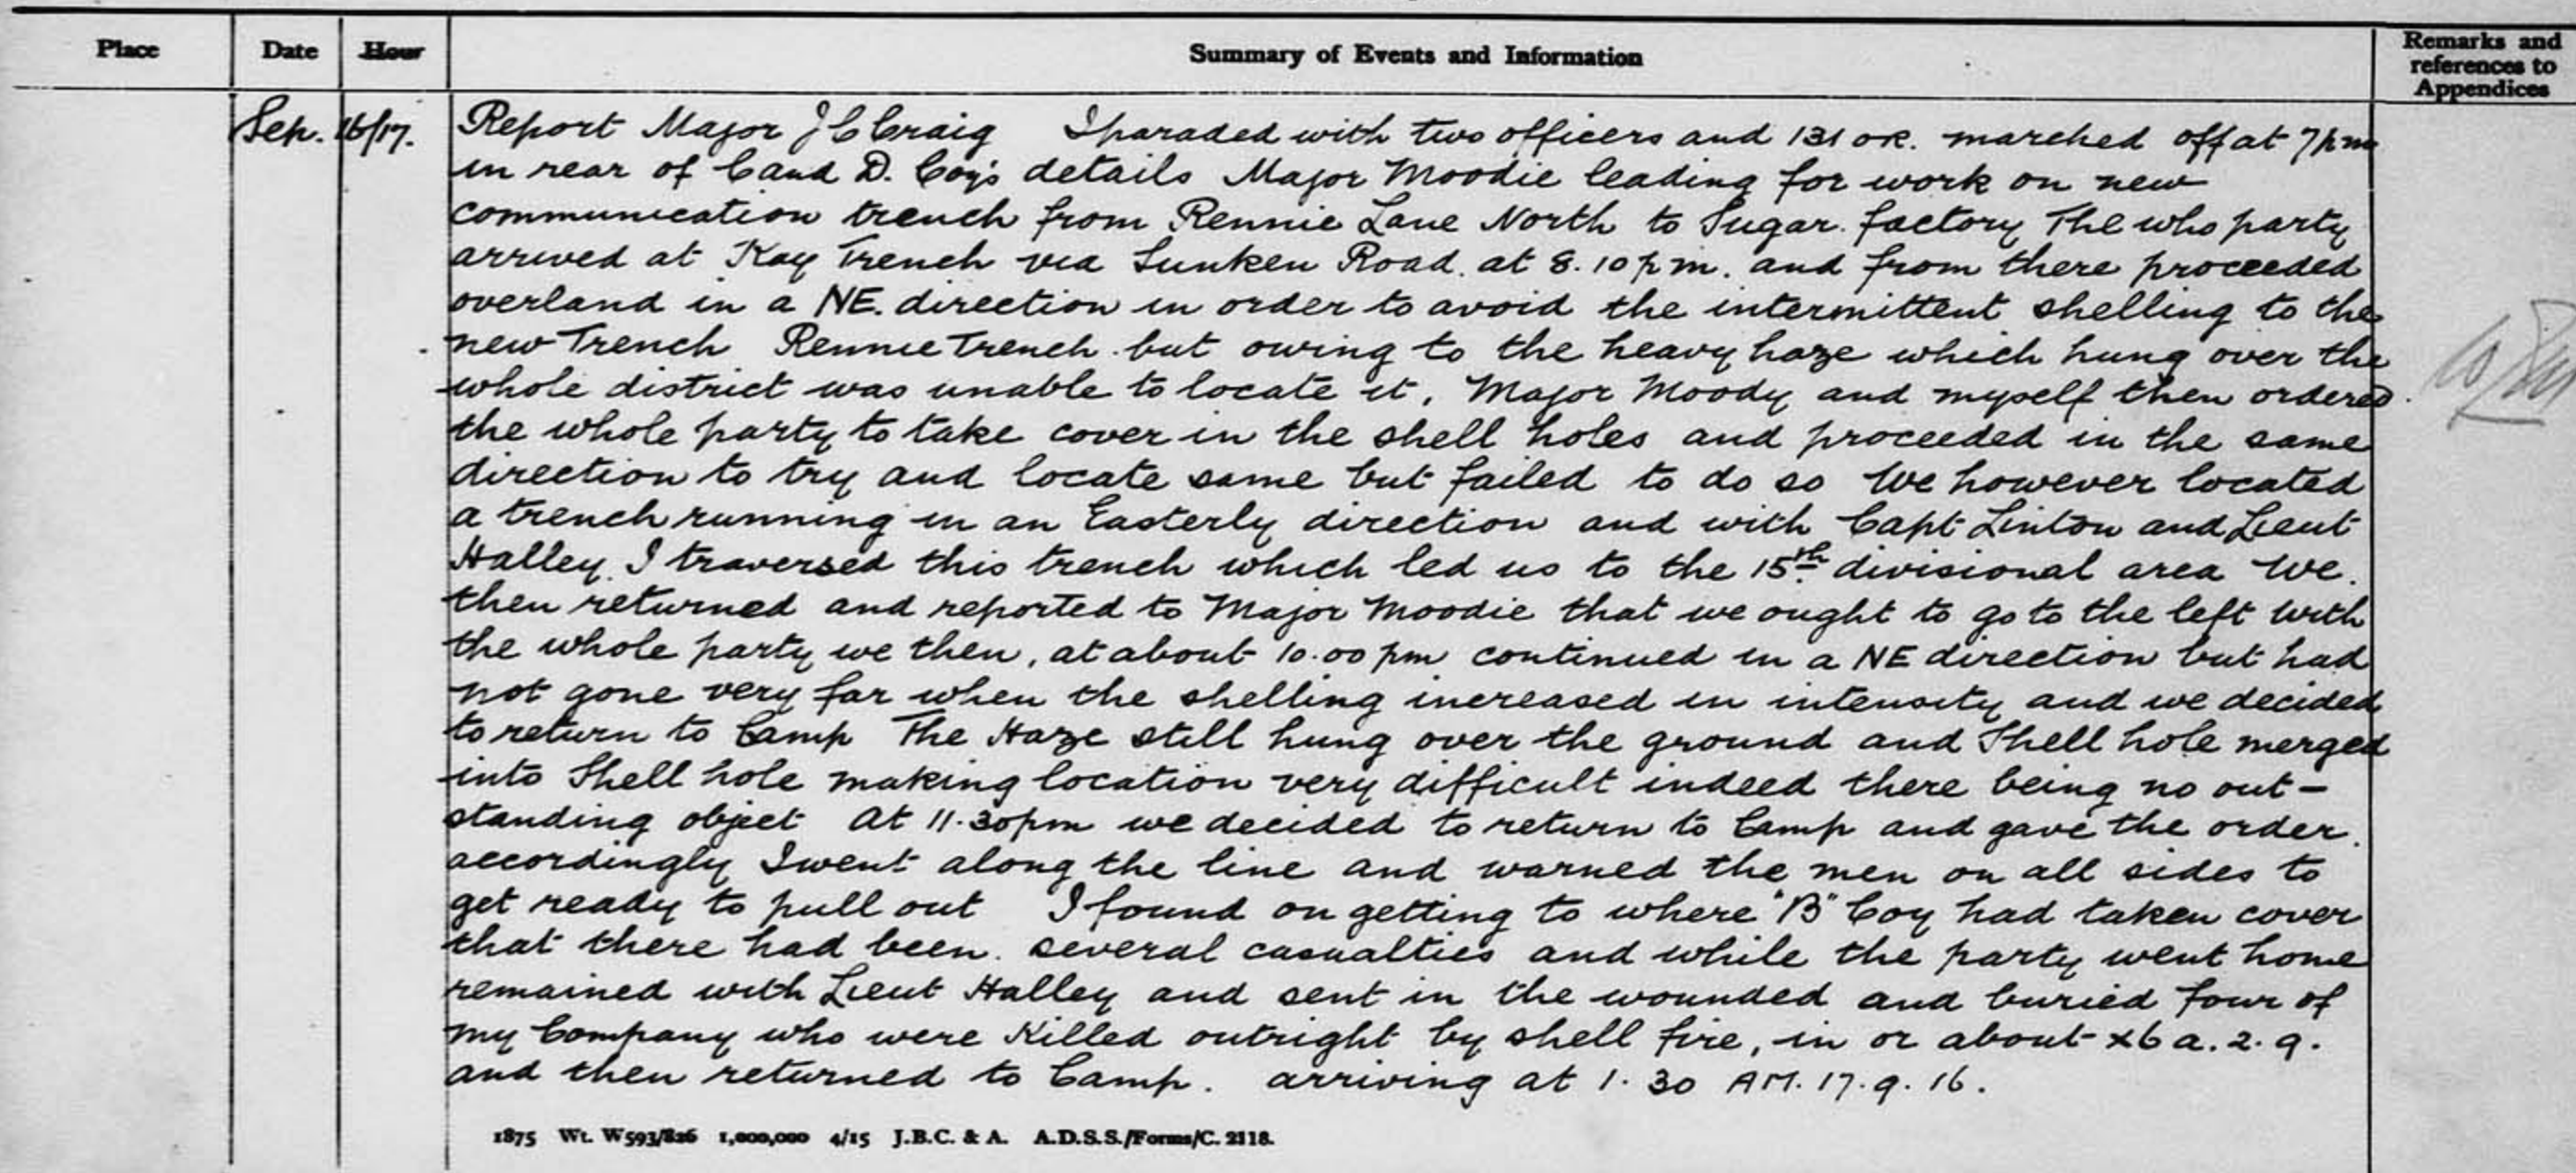 Place Date Hour Summary of Events and Information Remarks and references to Appendices
Sep. 16/17. Report Major J C Craig I paraded with two officers and 131 OR. marched off at 7 pm
in rear of C and D. Coy's details Major Moodie leading for work on new
communication trench from Rennie Lane North to Sugar factory The who party
arrived at Kay Trench via Sunken Road. at 8.10 pm. and from there proceeded
overland in a NE. direction in order to avoid the intermittent shelling to the
new Trench Rennie Trench but owing to the heavy haze which hung over the
whole district was unable to locate it. Major Moody and myself then ordered
the whole party to take cover in the shell holes and proceeded in the same
direction to try and locate same but failed to do so We however located
a trench running in an Easterly direction and with Capt Linton and Lieut
Halley. I traversed this trench which led us to the 15th divisional area We.
then returned and reported to Major Moodie that we ought to go to the left with
the whole party we then, at about 10.00 pm continued in a NE direction but had
not gone very far when the shelling increased in intensity and we decided
to return to Camp The Haze still hung over the ground and Shell hole merged
into Shell hole making location very difficult indeed there being no out-
standing object At 11.30 pm we decided to return to Camp and gave the order.
accordingly I went along the line and warned the men on all sides to
get ready to pull out I found on getting to where "B" Coy had taken cover
that there had been. several casualties and while the party went home
remained with Lieut Halley and sent in the wounded and buried four of
my Company who were Killed outright by shell fire, in or about X6 a. 2. 9.
and then returned to Camp. arriving at 1.30 AM. 17.9.16.
1875 Wt. W593/826 1,000,000 4/15 J.B.C. & A. A.D.S.S./Forms/C. 2118.